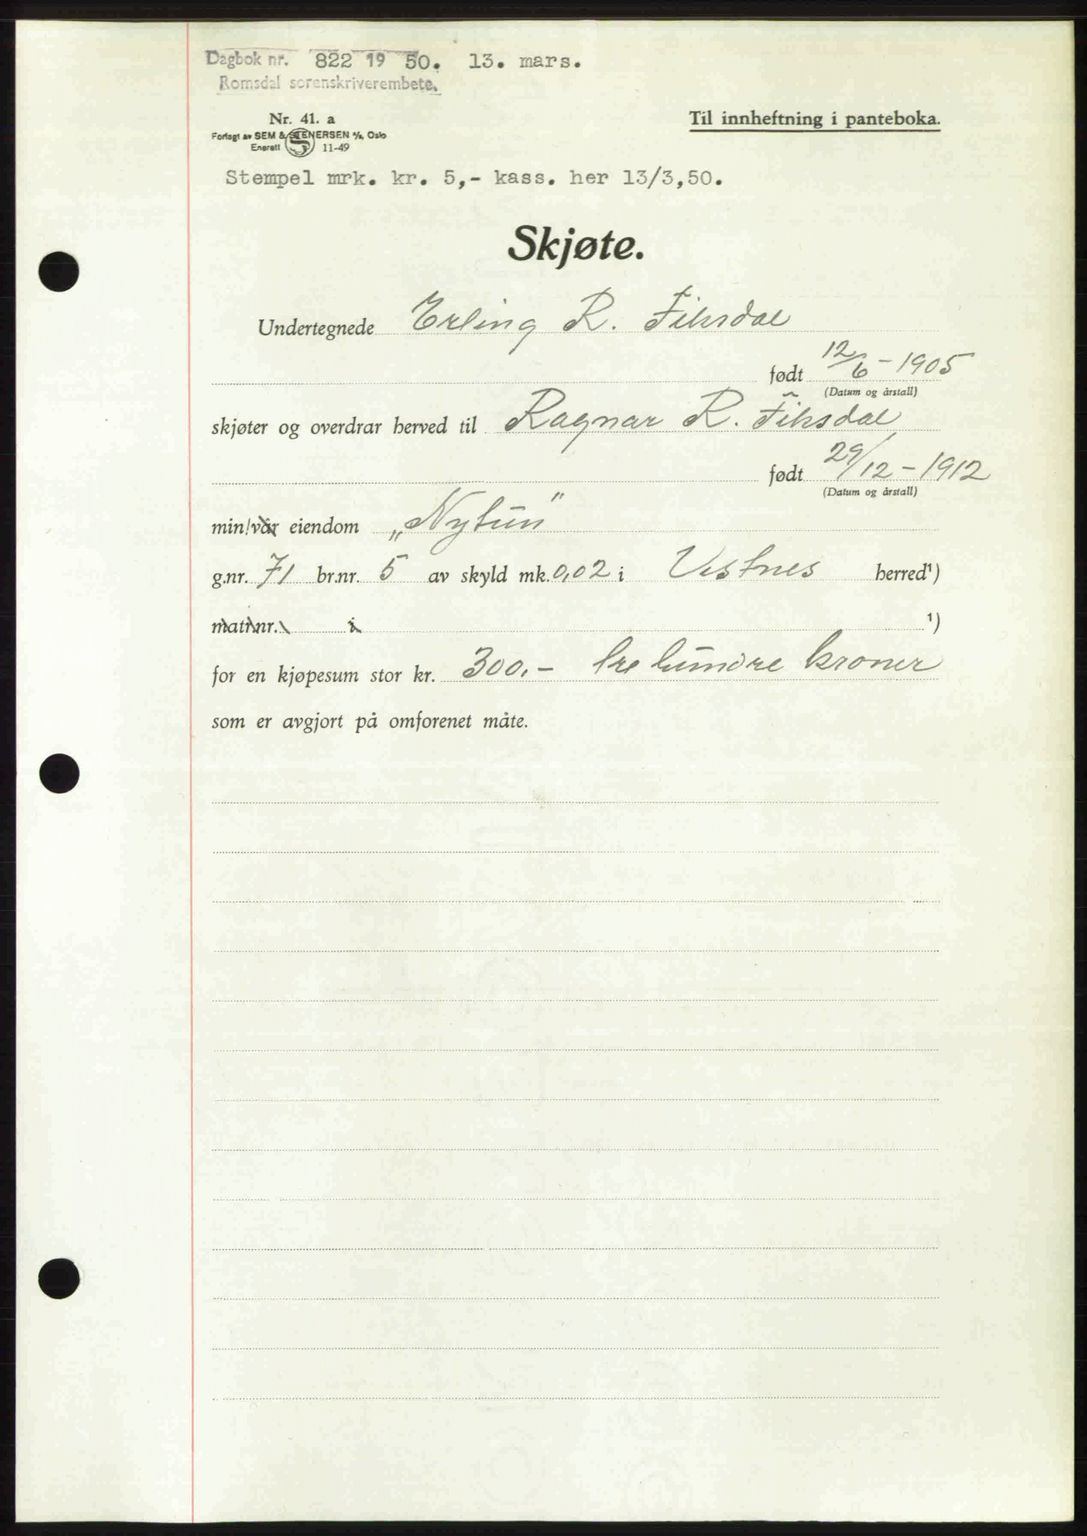 Dagbok nr. 822 19 50. 13. mars.
Romsdal sorenskriverembete.
Nr. 41. a
Til innheftning i panteboka.
Forlagt av SEM & STENERSEN A/S, Oslo
Enerett 11-49
Stempel mrk. kr. 5,- kass. her 13/3,50.
Skjøte.
Undertegnede Erling R. Fiksdal
født 12/6-1905
(Datum og årstall)
skjøter og overdrar herved til Ragnar R. Fiksdal
født 29/12-1912
(Datum og årstall)
min/vår eiendom „Nytun"
g.nr. 71 br.nr. 5 av skyld mk. 0,02 i Vestnes herred¹)
matr.nr. i ¹)
for en kjøpesum stor kr. 300.- tre hundre kroner
som er avgjort på omforenet måte.